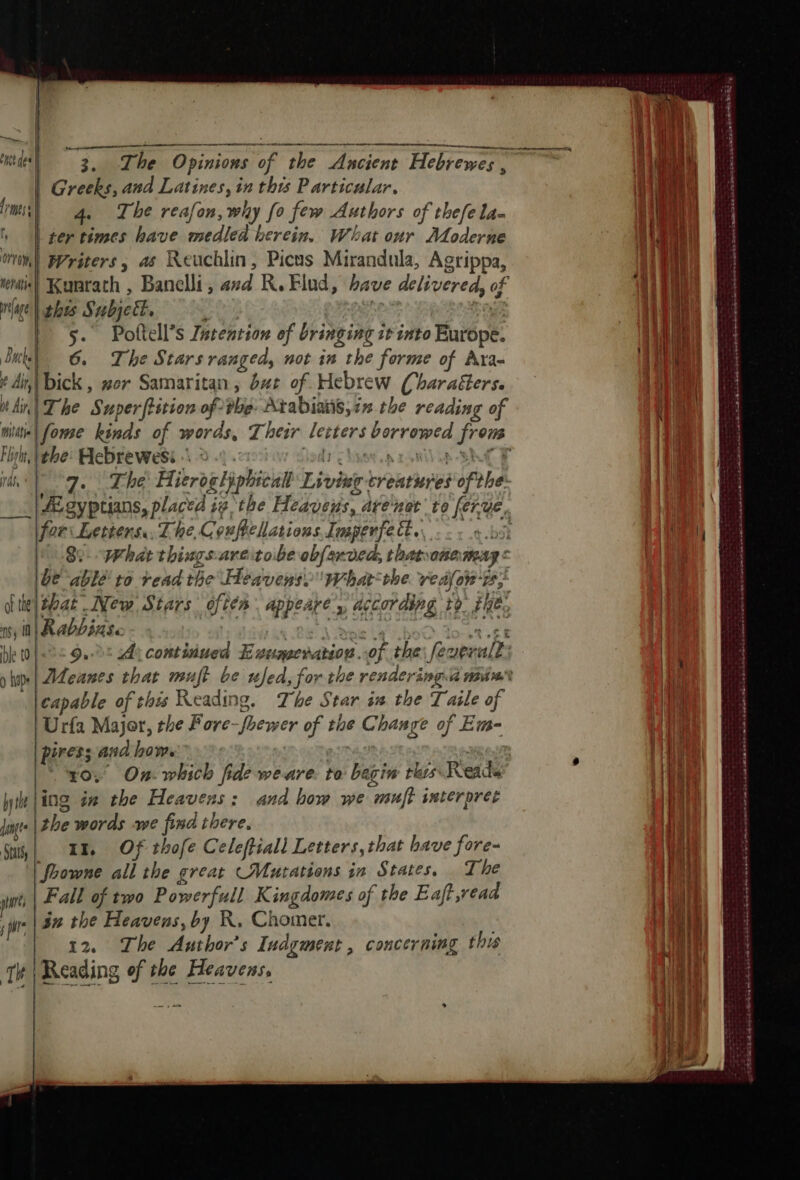 3. The Opinions of the Ancient Hebrewes,
Greeks, and Latines, in this Particular.
4. The reaſon, why ſo few Authors of theſe la-
ter times have medled herein. What our Moderne
Writers, as Reuchlin, Picus Mirandula, Agrippa,
Kunrath, Banelli, and R. Flud, have delivered, of
this Subject.
5. Poſtell's Intention of bringing it into Europe.
6. The Stars ranged, not in the forme of Ara-
bick, nor Samaritan, but of Hebrew Characters.
The Superſtition of the Arabians, in the reading of
ſome kinds of words. Their letters borrowed from
the Hebrewes.
7. The Hieroglyphicall Living creatures of the
Ægyptians, placed in the Heavens, are not to ſerve
for Letters. The Conſtellations Imperfect.
8. What things are to be obſerved, that one may
be able to read the Heavens. What the reaſon is,
that New Stars often appeare, according to the
Rabbins.
9. A continued Enumeration of the ſeverall
Meanes that muſt be uſed, for the rendering a man
capable of this Reading. The Star in the Taile of
Urſa Major, the Fore-ſhewer of the Change of Em-
pires; and how.
10. On which ſide we are to begin this Read-
ing in the Heavens: and how we muſt interpret
the words we find there.
11. Of thoſe Celeſtiall Letters, that have fore-
ſhowne all the great Mutations in States. The
Fall of two Powerfull Kingdomes of the Eaſt, read
in the Heavens, by R. Chomer.
12. The Author's Iudgment, concerning this
Reading of the Heavens.